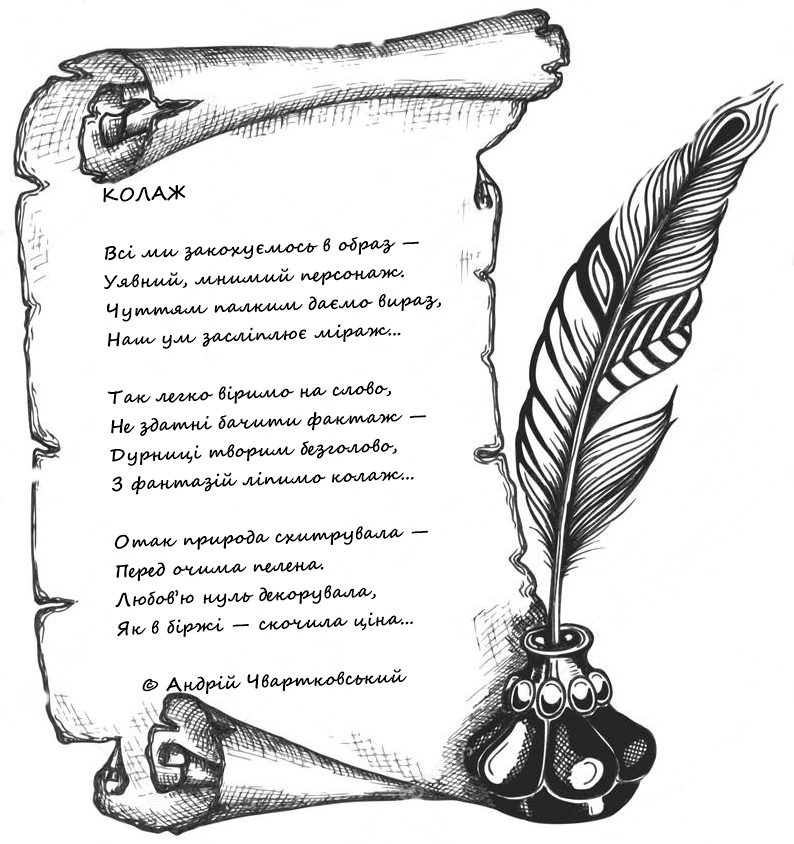 КОЛАЖ
Всі ми закохуємось в образ —
Уявний, мнимий персонаж.
Чуттям палким даємо вираз,
Наш ум засліплює міраж...
Так легко віримо на слово,
Не здатні бачити фактаж —
Дурниці творим безголово,
З фантазій ліпимо колаж...
Отак природа схитрувала —
Перед очима пелена.
Любов'ю нуль декорувала,
Як в біржі — скочила ціна...
© Андрій Чвартковський